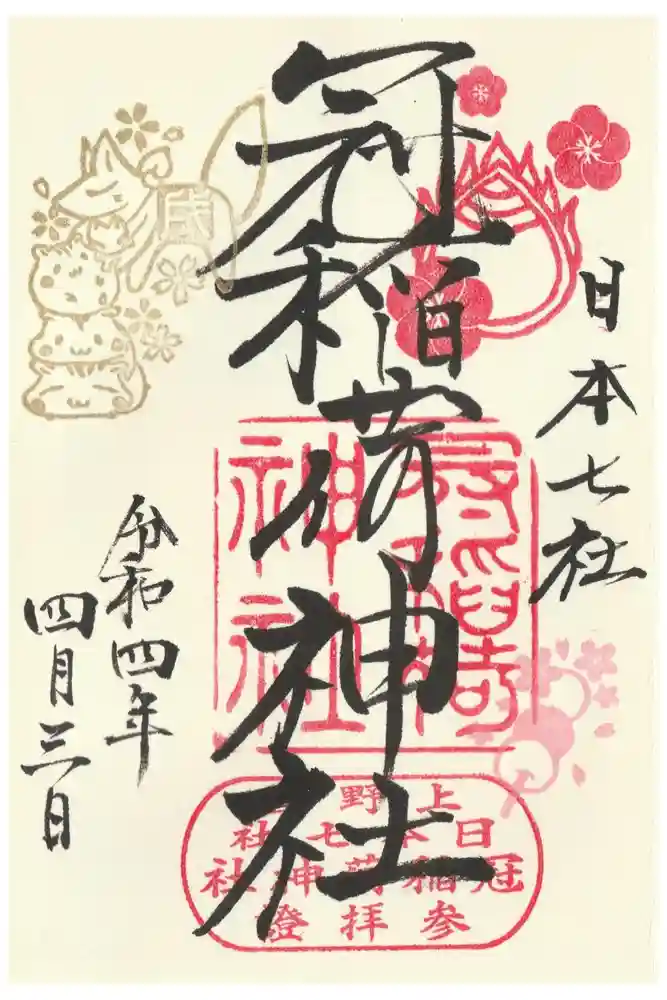 日本七社
冠稲荷神社
令和四年
四月三日
冠稲荷
神社
上野
日本七社
冠稲荷神社
参拝證